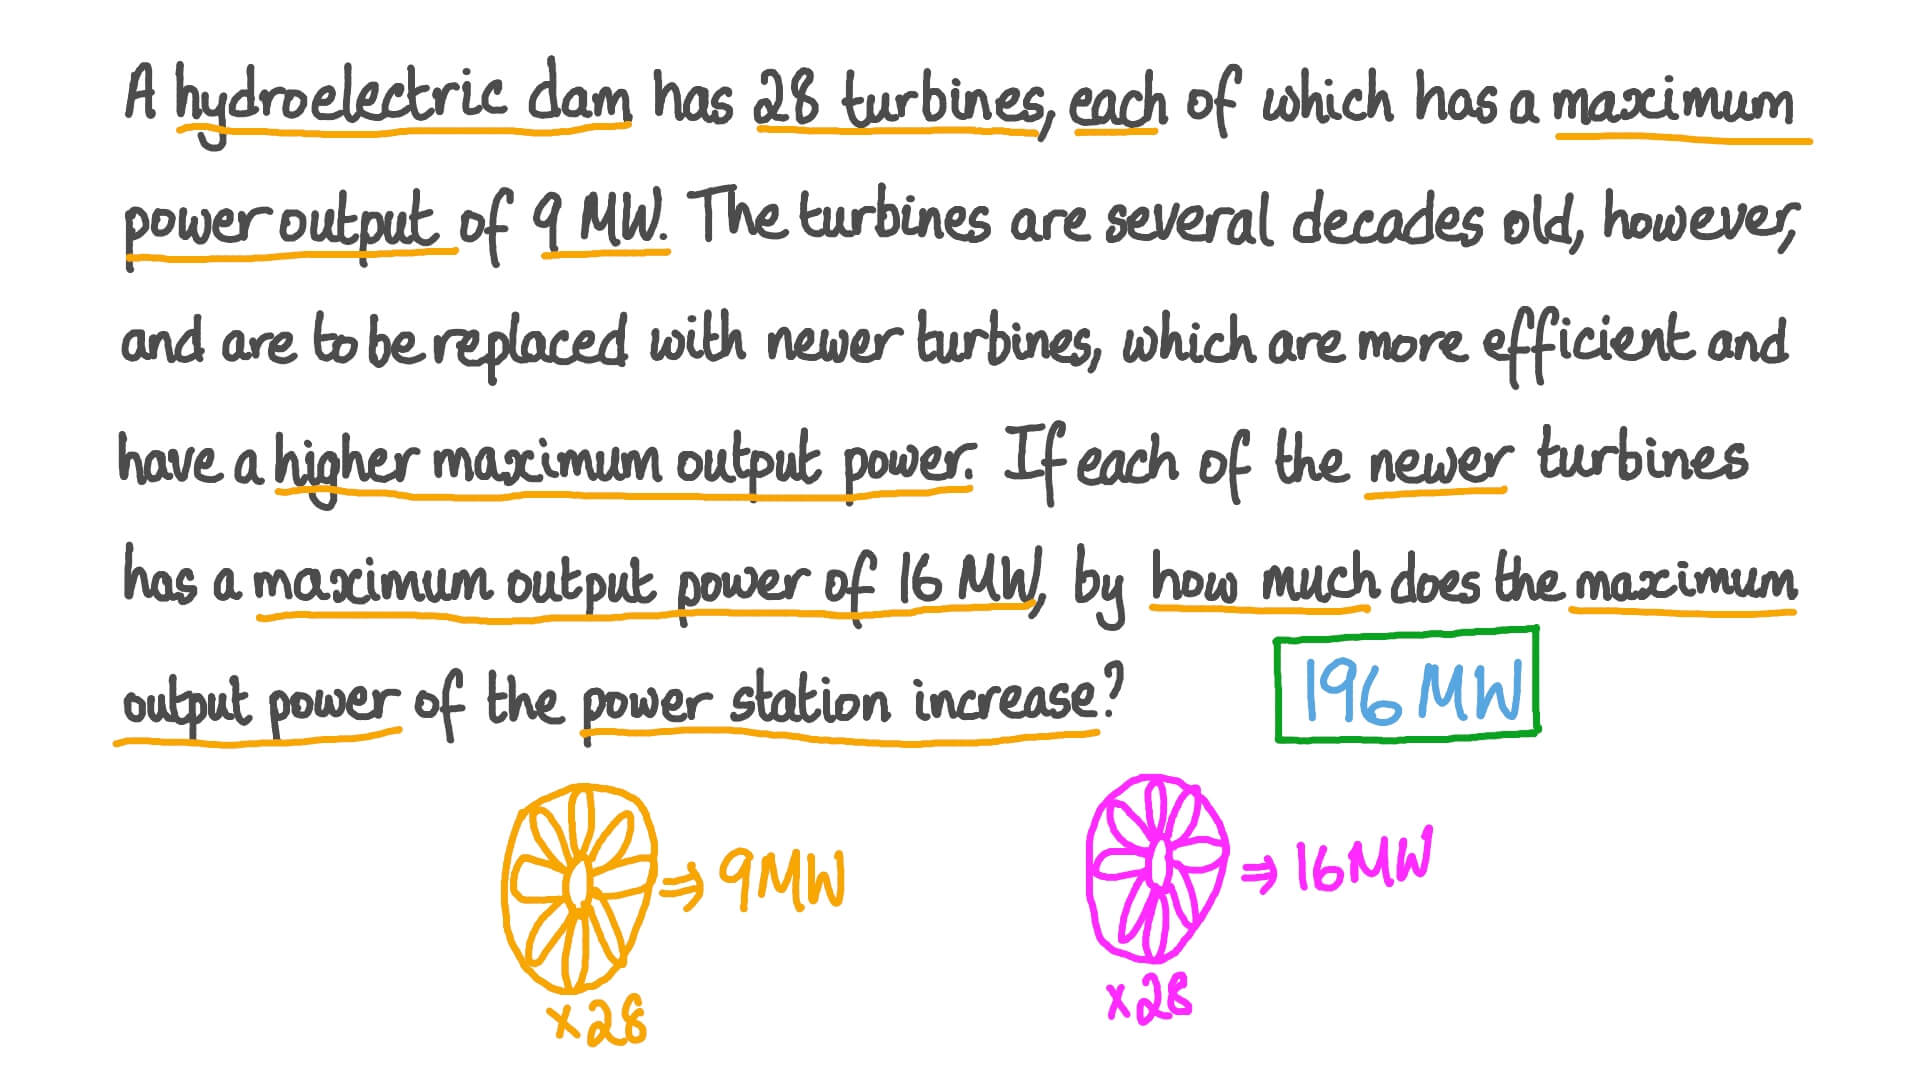 A hydroelectric dam has 28 turbines, each of which has a maximum
power output of 9 MW. The turbines are several decades old, however,
and are to be replaced with newer turbines, which are more efficient and
have a higher maximum output power. If each of the newer turbines
has a maximum output power of 16 MW, by how much does the maximum
output power of the power station increase?
196 MW
⇒ 9MW
×28
⇒ 16MW
×28